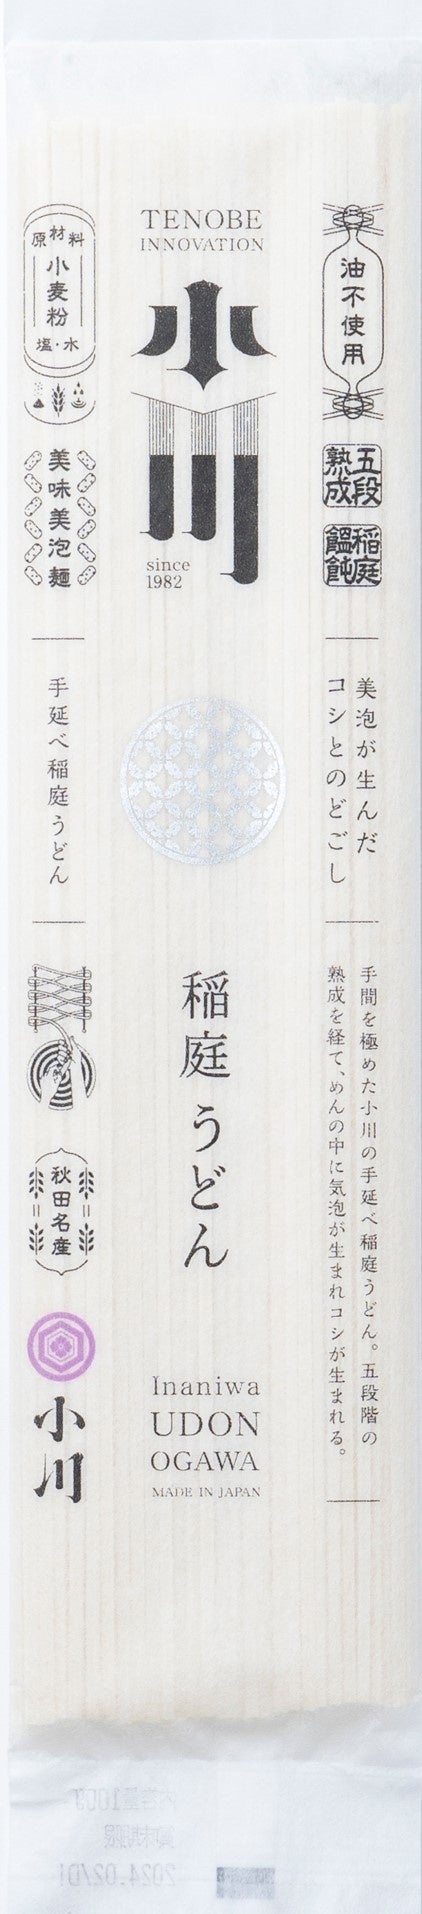 TENOBE
INNOVATION
小川
since
1982
稲庭うどん
Inaniwa
UDON
OGAWA
MADE IN JAPAN
油不使用
五段
熟成
稲庭
饂飩
美泡が生んだ
コシとのどごし
手間を極めた小川の手延べ稲庭うどん。五段階の
熟成を経て、めんの中に気泡が生まれコシが生まれる。
原材料
小麦粉
塩・水
美味美泡麺
手延べ稲庭うどん
秋田名産
小川
内容量100g
賞味期限
2024.02/01